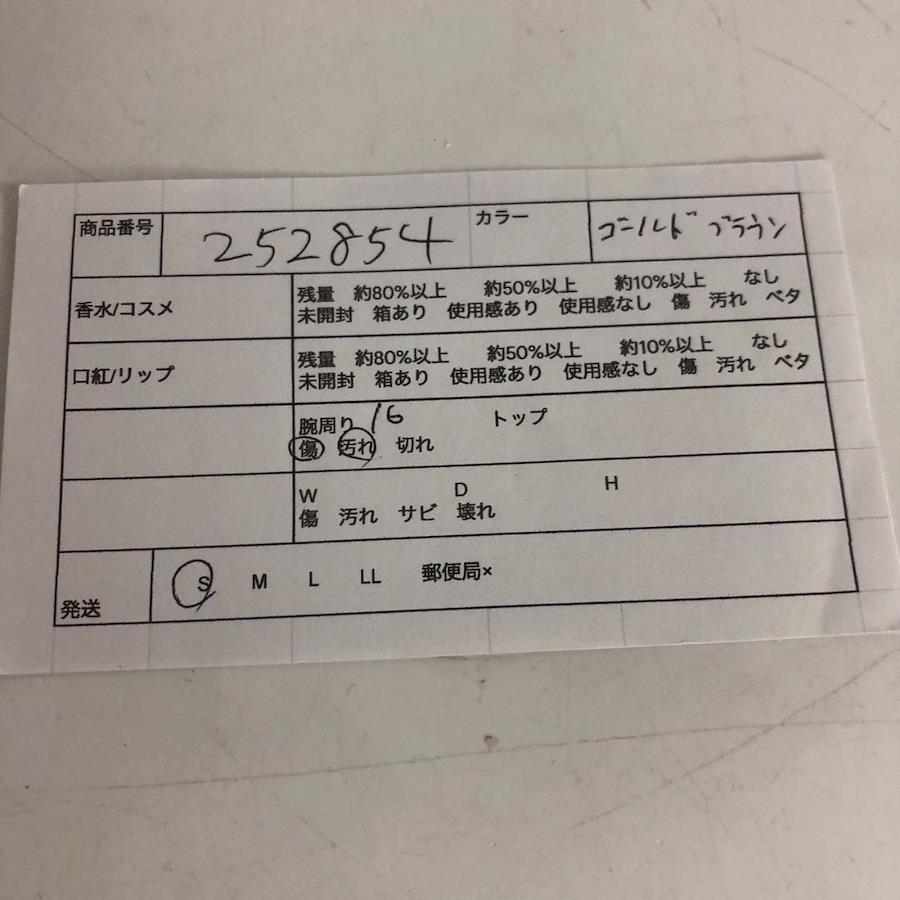 商品番号 252854 カラー ゴールド ブラウン
香水/コスメ
残量 約80%以上 約50%以上 約10%以上 なし
未開封 箱あり 使用感あり 使用感なし 傷 汚れ ベタ
口紅/リップ
残量 約80%以上 約50%以上 約10%以上 なし
未開封 箱あり 使用感あり 使用感なし 傷 汚れ ベタ
腕周り 16 トップ
傷 汚れ 切れ
W D H
傷 汚れ サビ 壊れ
発送 S M L LL 郵便局×